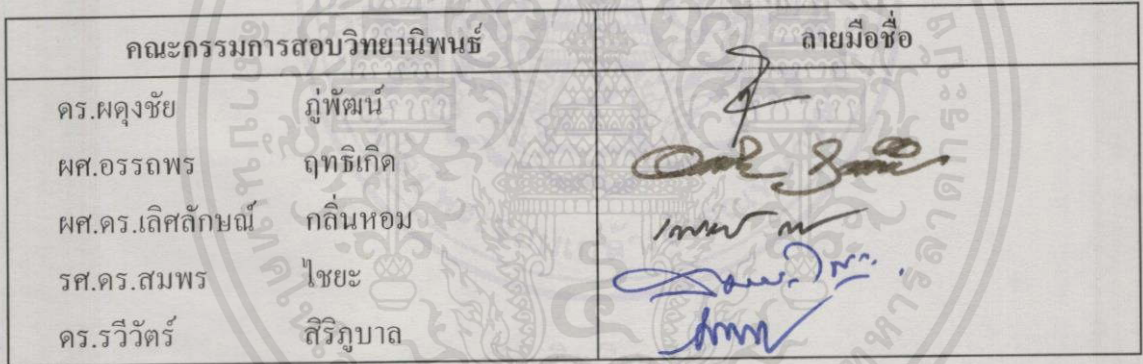 คณะกรรมการสอบวิทยานิพนธ์ ลายมือชื่อ
ดร.ผดุงชัย ภู่พัฒน์
ผศ.อรรถพร ฤทธิเกิด
ผศ.ดร.เลิศลักษณ์ กลิ่นหอม
รศ.ดร.สมพร ไชยะ
ดร.รวีวัตร์ สิริภูบาล